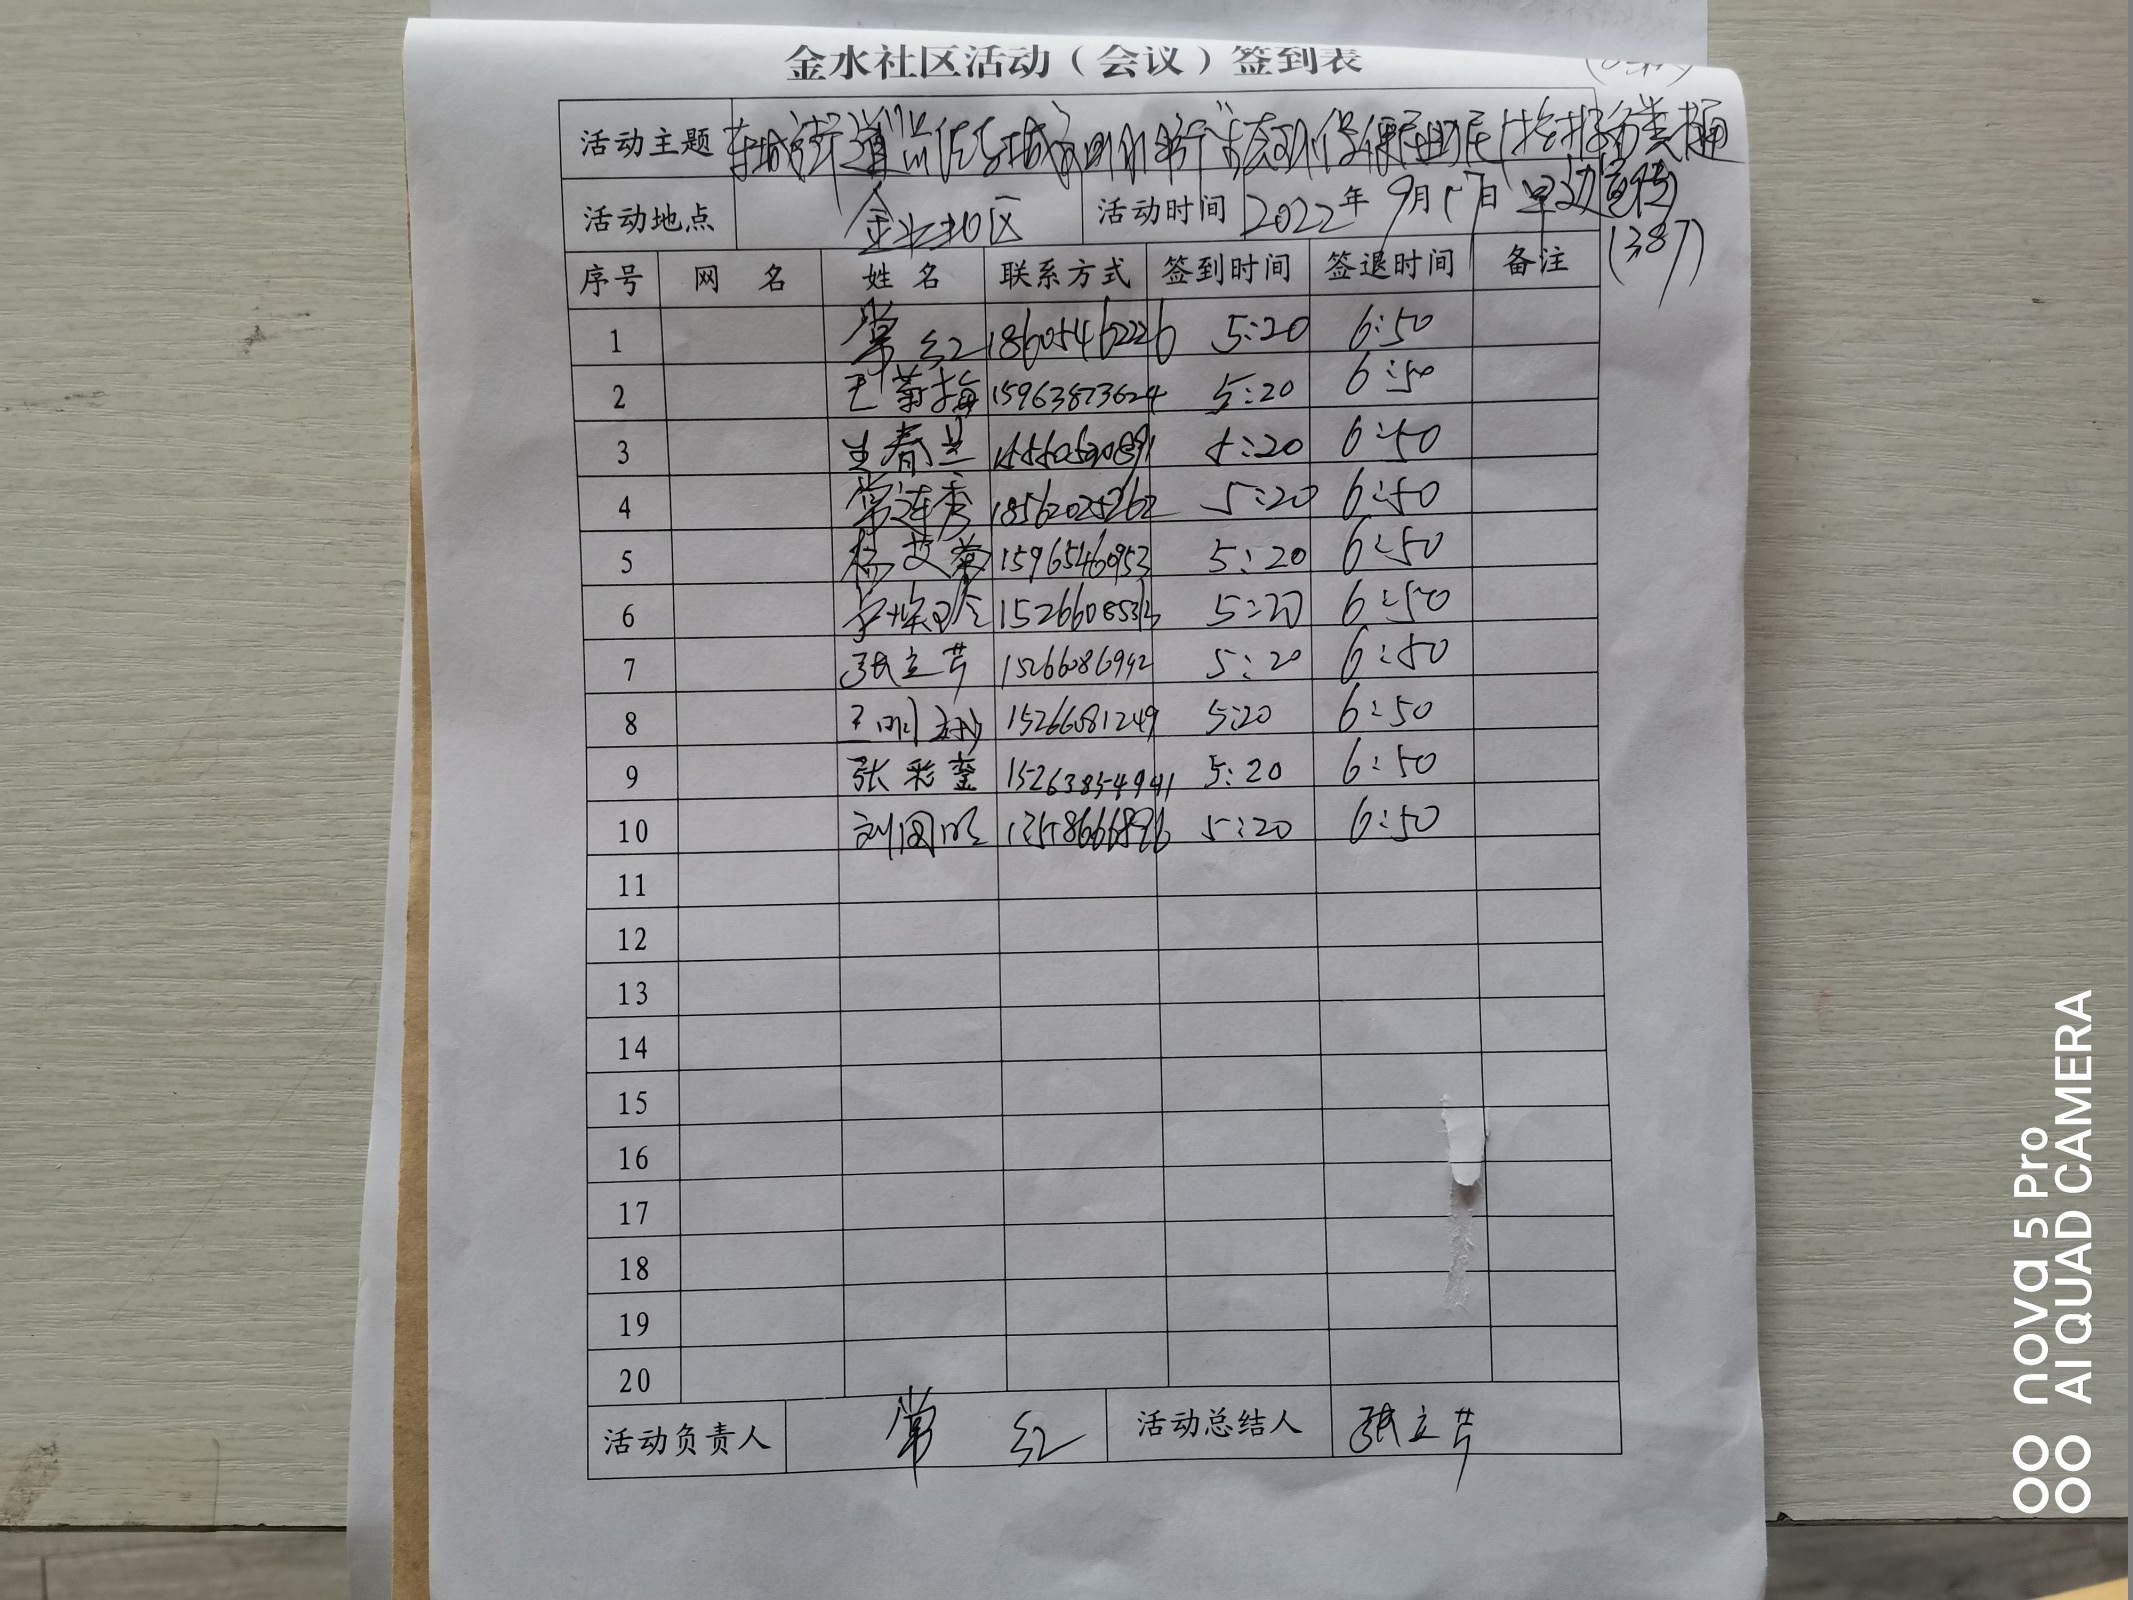 金水社区活动（会议）签到表
活动主题 东城街道 便民助民 分类桶
活动地点 金水社区 活动时间 2022年9月17日 早 边宣传
(387)
序号 网 名 姓 名 联系方式 签到时间 签退时间 备注
1 常红 18605462226 5:20 6:50
2 王菊梅 15963873624 5:20 6:50
3 王春兰 5:20 6:50
4 常连秀 18562025262 5:20 6:50
5 杨艾菊 15965460953 5:20 6:50
6 5:20 6:50
7 张立芹 15266086942 5:20 6:50
8 王明 15266081249 5:20 6:50
9 张彩銮 15263854941 5:20 6:50
10 刘国明 5:20 6:50
11
12
13
14
15
16
17
18
19
20
活动负责人 常 红 活动总结人 张立芹
nova 5 Pro
AI QUAD CAMERA